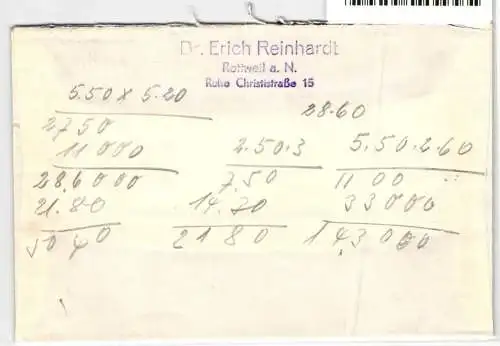 Dr. Erich Reinhardt
Rottweil a. N.
Ruhe Christistraße 15
5.50 x 5.20
28.60
2750
11000
2.50.3
5.50.2.60
28,6000
7.50
1100
21.80
14.30
33000
5040
2180
143000